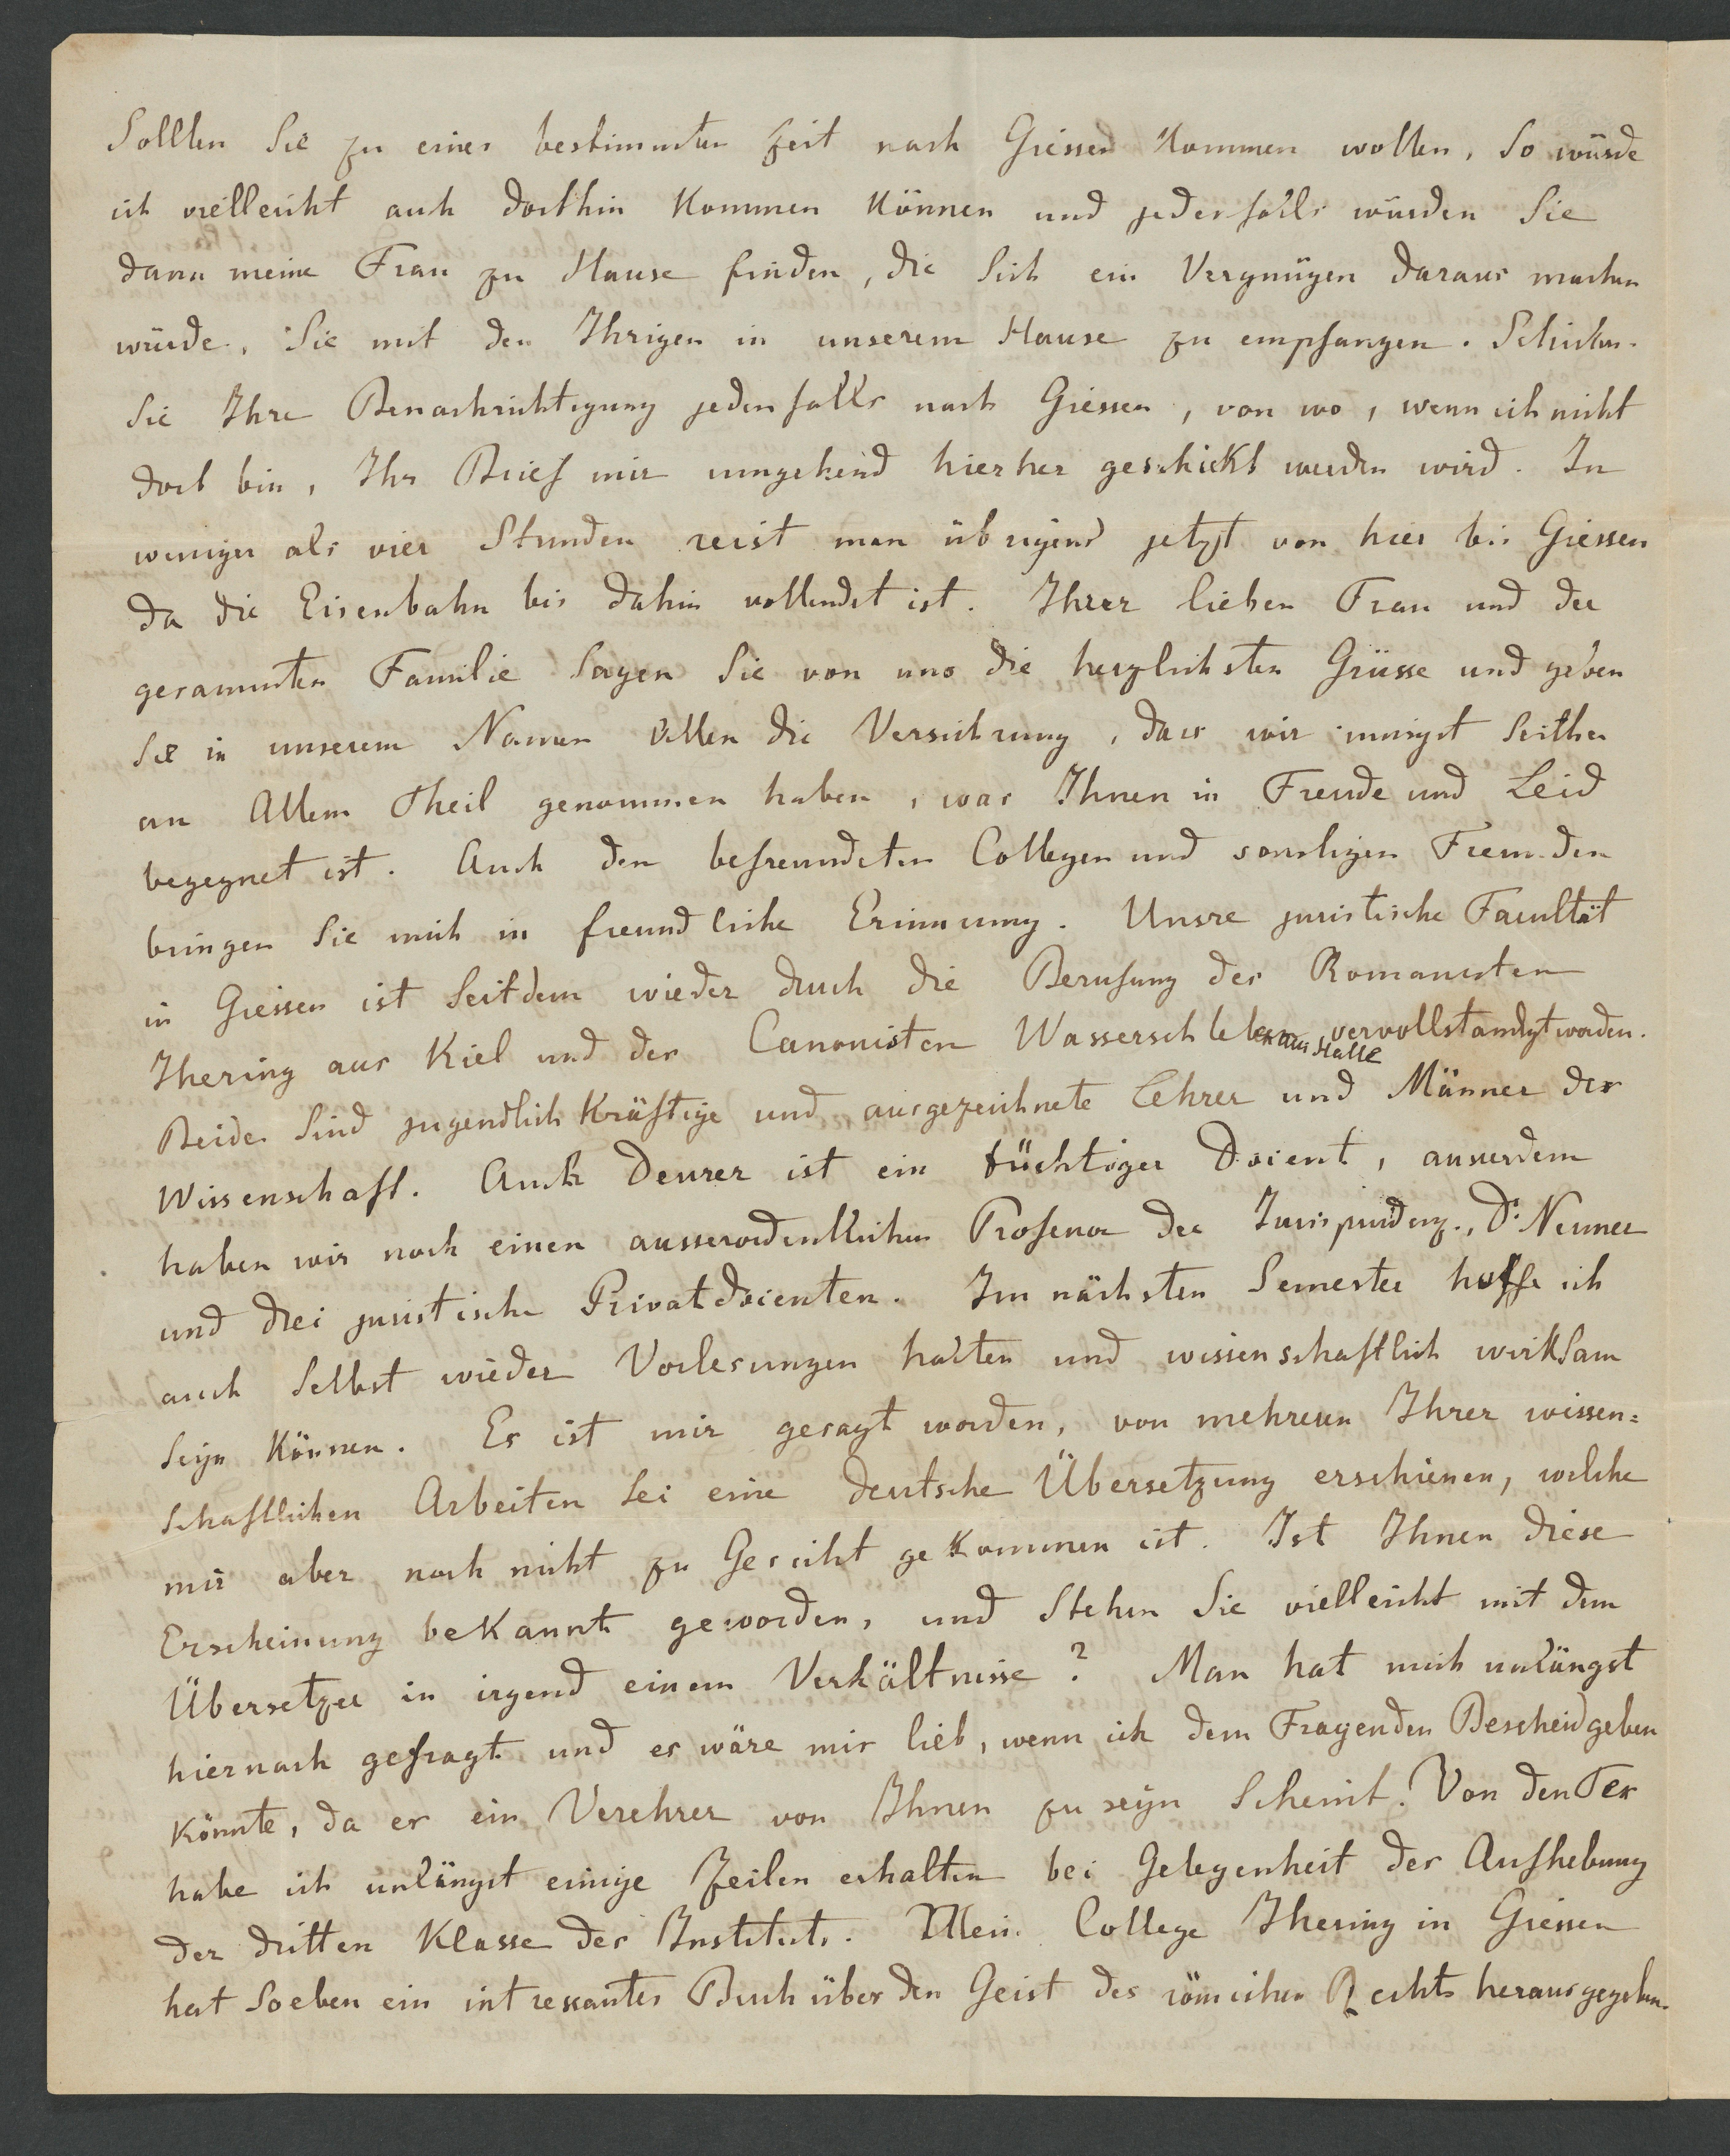 Sollten Sie zu einer bestimmten Zeit nach Giessen kommen wollen, so würde
ich vielleicht auch dorthin kommen können und jedenfalls würden Sie
dann meine Frau zu Hause finden, die sich ein Vergnügen daraus machen
würde, Sie mit den Ihrigen in unserem Hause zu empfangen. Schicken
Sie Ihre Benachrichtigung jedenfalls nach Giessen, von wo, wenn ich nicht
dort bin, Ihr Brief mir umgehend hierher geschickt werden wird. In
weniger als vier Stunden reist man übrigens jetzt von hier bis Giessen
da die Eisenbahn bis dahin vollendet ist. Ihrer lieben Frau und der
gesammten Familie sagen Sie von uns die herzlichsten Grüsse und geben
Sie in unserem Namen Allen die Versichrung, dass wir innigst seither
an Allem Theil genommen haben, was Ihnen in Freude und Leid
begegnet ist. Auch den befreundeten Collegen und sonstigen Freunden
bringen Sie mich in freundliche Erinnrung. Unsre juristische Facultät
in Giessen ist seitdem wieder durch die Berufung des Romanisten
Ihering aus Kiel und des Canonisten Wasserschleben aus Halle vervollständigt worden.
Beide sind jugendlich kräftige und ausgezeichnete Lehrer und Männer der
Wissenschaft. Auch Deurer ist ein tüchtiger Docent, ausserdem
haben wir noch einen ausserordentlichen Professor der Jurisprudenz, Dr. Neuner
und drei juristische Privatdocenten. Im nächsten Semester hoffe ich
auch selbst wieder Vorlesungen halten und wissenschaftlich wirksam
seyn können. Es ist mir gesagt worden, von mehreren Ihrer wissen=
schaftlichen Arbeiten sei eine deutsche Übersetzung erschienen, welche
mir aber noch nicht zu Gesicht gekommen ist. Ist Ihnen diese
Erscheinung bekannt geworden, und stehen Sie vielleicht mit dem
Übersetzer in irgend einem Verhältnisse? Man hat mich unlängst
hiernach gefragt und es wäre mir lieb, wenn ich dem Fragenden Bescheid geben
könnte, da er ein Verehrer von Ihnen zu seyn scheint. Von den Tex
habe ich unlängst einige Zeilen erhalten bei Gelegenheit der Aufhebung
der dritten Klasse des Instituts. Mein College Ihering in Giessen
hat soeben ein intressantes Buch über den Geist des römischen Rechts herausgegeben.